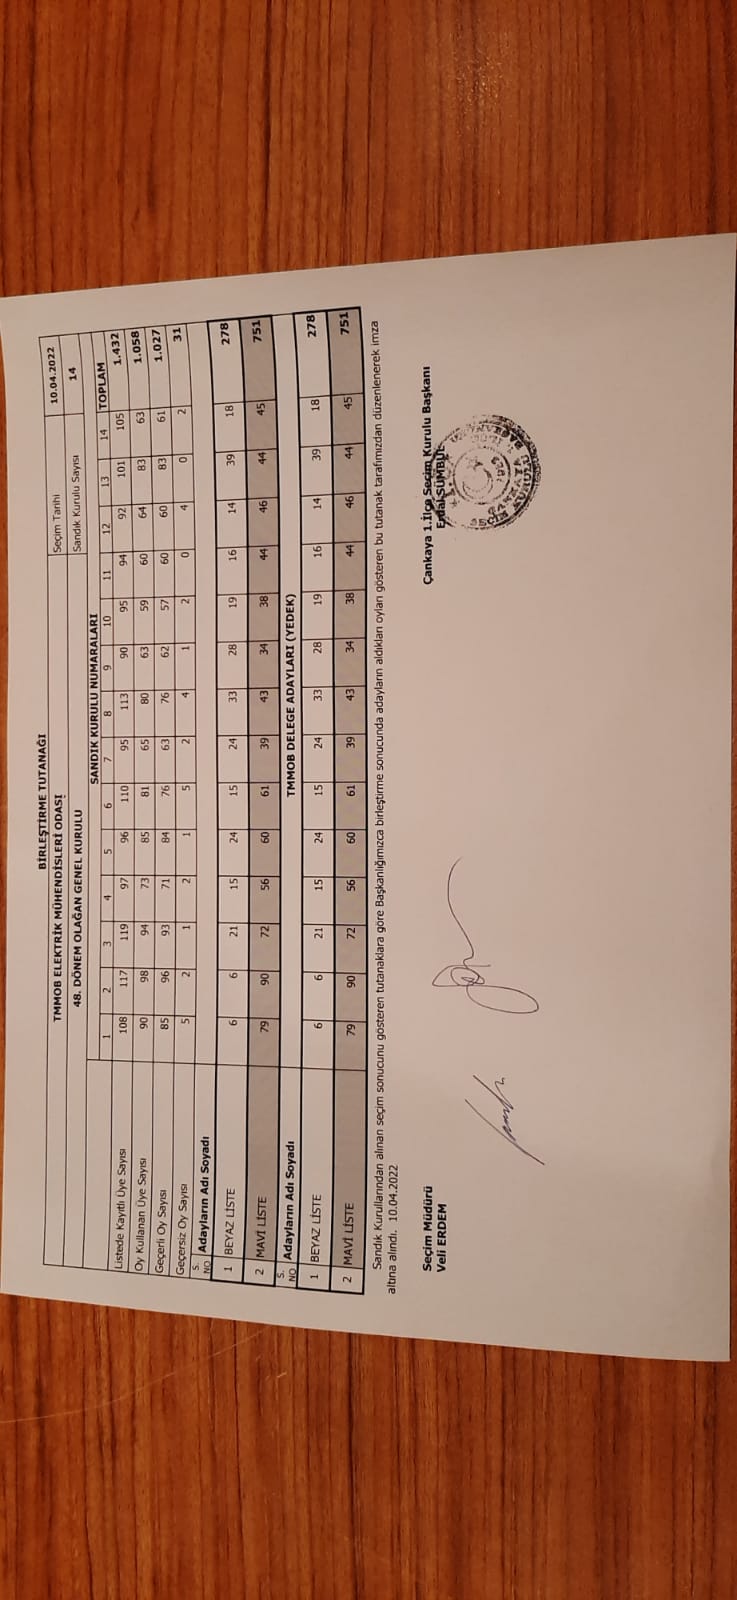 BİRLEŞTİRME TUTANAĞI
TMMOB ELEKTRİK MÜHENDİSLERİ ODASI Seçim Tarihi 10.04.2022
48. DÖNEM OLAĞAN GENEL KURULU Sandık Kurulu Sayısı 14
SANDIK KURULU NUMARALARI
1 2 3 4 5 6 7 8 9 10 11 12 13 14 TOPLAM
Listede Kayıtlı Üye Sayısı 108 117 119 97 96 110 95 113 90 95 94 92 101 105 1.432
Oy Kullanan Üye Sayısı 90 98 94 73 85 81 65 80 63 59 60 64 83 63 1.058
Geçerli Oy Sayısı 85 96 93 71 84 76 63 76 62 57 60 60 83 61 1.027
Geçersiz Oy Sayısı 5 2 1 2 1 5 2 4 1 2 0 4 0 2 31
S. NO Adayların Adı Soyadı
1 BEYAZ LİSTE 6 6 21 15 24 15 24 33 28 19 16 14 39 18 278
2 MAVİ LİSTE 79 90 72 56 60 61 39 43 34 38 44 46 44 45 751
S. NO Adayların Adı Soyadı TMMOB DELEGE ADAYLARI (YEDEK)
1 BEYAZ LİSTE 6 6 21 15 24 15 24 33 28 19 16 14 39 18 278
2 MAVİ LİSTE 79 90 72 56 60 61 39 43 34 38 44 46 44 45 751
Sandık Kurullarından alınan seçim sonucunu gösteren tutanaklara göre Başkanlığımızca birleştirme sonucunda adayların aldıkları oyları gösteren bu tutanak tarafımızdan düzenlenerek imza
altına alındı. 10.04.2022
Seçim Müdürü Çankaya 1.İlçe Seçim Kurulu Başkanı
Veli ERDEM Erdal SÜMBÜL